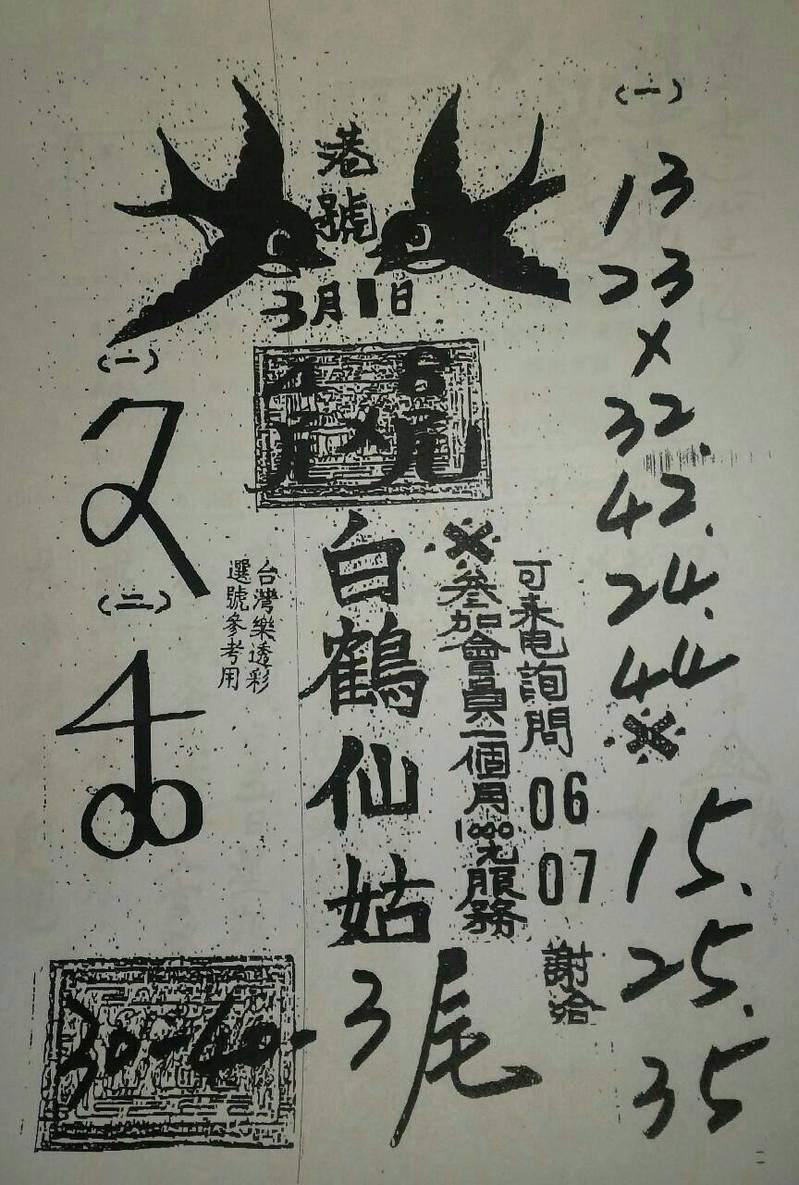 港號
3月1日
(一)
13
23
×
32.
42.
24.
44
※
15.
25.
35
(一)
(二)
4尾×6尾
白鶴仙姑
※參加會員一個月1000元服務
可來电詢問 06 07 謝洽
台灣樂透彩
選號參考用
30-40-3尾